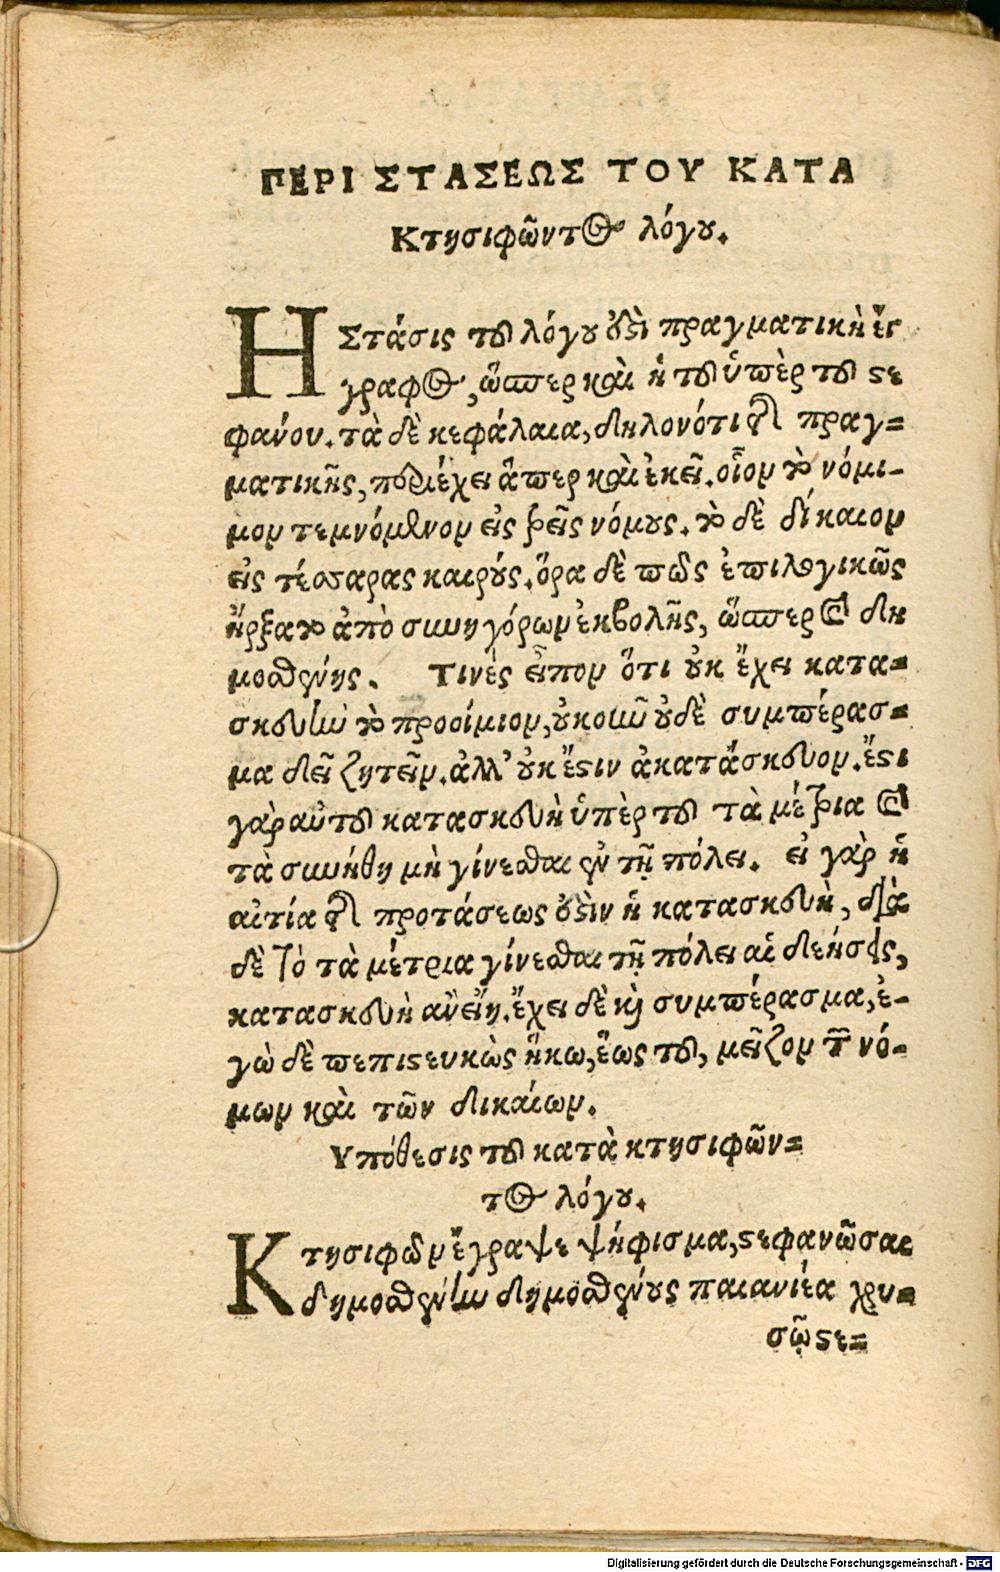 ΠΕΡΙ ΣΤΑΣΕΩΣ ΤΟΥ ΚΑΤΑ
Κτησιφῶντος λόγου.
Η Στάσις τοῦ λόγου ὅτι πραγματικὴ ἔγ
γραφος, ὥσπερ καὶ ἡ τοῦ ὑπὲρ τοῦ στε
φάνου. τὰ δὲ κεφάλαια, δηλονότι τῆς πραγ=
ματικῆς, περιέχει ἅπερ καὶ ἐκεῖ. οἷον τὸ νόμι-
μον τεμνόμενον εἰς τρεῖς νόμους. τὸ δὲ δίκαιον
εἰς τέσσαρας καιρούς. ὅρα δὲ πῶς ἐπιλογικῶς
ἤρξατο ἀπὸ συνηγόρων ἐκβολῆς, ὥσπερ καὶ δη
μοσθένης. Τινὲς εἶπον ὅτι οὐκ ἔχει κατα=
σκευὴν τὸ προοίμιον, οὐκοῦν οὐδὲ συμπέρασ=
μα δεῖ ζητεῖν. ἀλλ' οὐκ ἔστιν ἀκατάσκευον. ἔστι
γὰρ αὐτοῦ κατασκευὴ ὑπὲρ τοῦ τὰ μέτρια καὶ
τὰ συνήθη μὴ γίνεσθαι ἐν τῇ πόλει. εἰ γὰρ ἡ
αἰτία τῆς προτάσεως ὅτιν ἡ κατασκευὴ, διὰ
δὲ τὸ τὰ μέτρια γίνεσθαι τῇ πόλει αἱ δεήσεις,
κατασκευὴ ἂν εἴη. ἔχει δὲ καὶ συμπέρασμα, ἐ-
γὼ δὲ πεπιστευκὼς ἥκω, ἕως τοῦ, μεῖζον τῶν νό-
μων καὶ τῶν δικαίων.
Υπόθεσις τοῦ κατὰ κτησιφῶν=
τος λόγου.
Κτησιφῶν ἔγραψε ψήφισμα, στεφανῶσαι
δημοσθένην δημοσθένους παιανιέα χρυ=
σῷ στε=
Digitalisierung gefördert durch die Deutsche Forschungsgemeinschaft - DFG